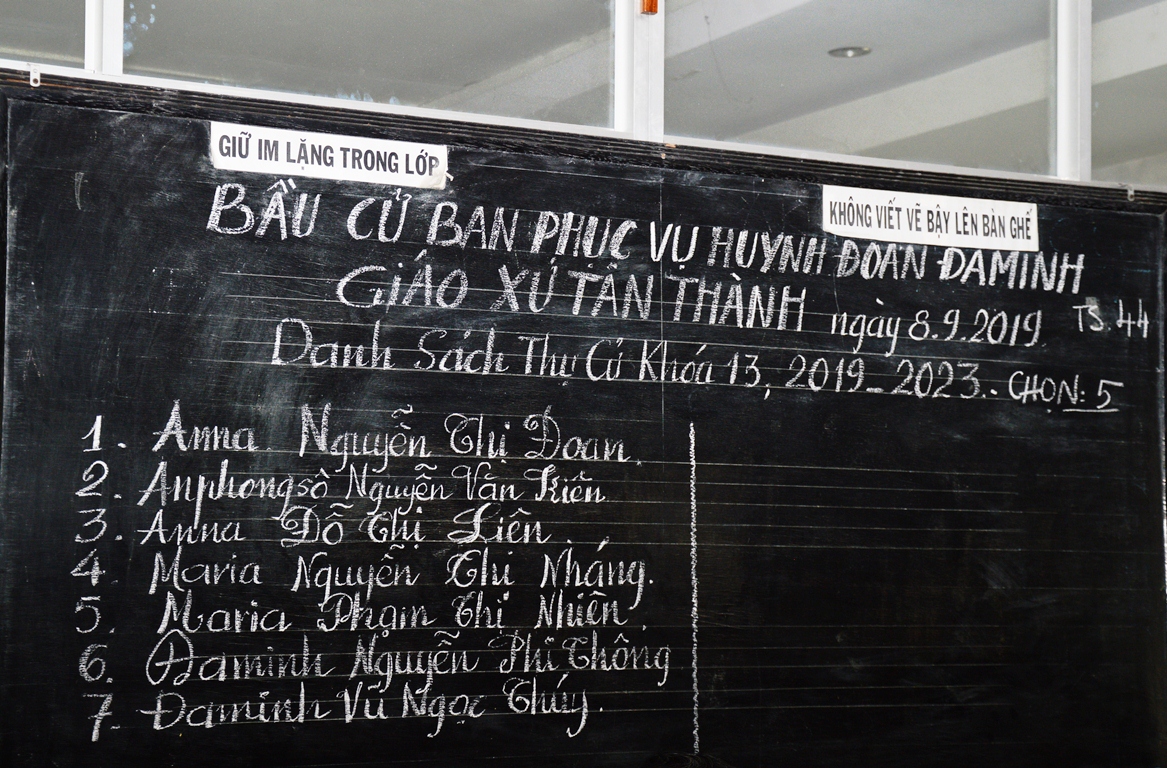 GIỮ IM LẶNG TRONG LỚP
KHÔNG VIẾT VẼ BẬY LÊN BÀN GHẾ
BẦU CỬ BAN PHỤC VỤ HUYNH ĐOÀN ĐAMINH
GIÁO XỨ TÂN THÀNH ngày 8.9.2019. TS. 44
Danh Sách Thụ Cử Khóa 13, 2019-2023.. CHỌN: 5
1. Anna Nguyễn Thị Đoan.
2. Anphongsô Nguyễn Văn Kiên.
3. Anna Đỗ Thị Liên.
4. Maria Nguyễn Thị Nháng.
5. Maria Phạm Thị Nhiên.
6. Đaminh Nguyễn Phi Thông
7. Đaminh Vũ Ngọc Thúy.